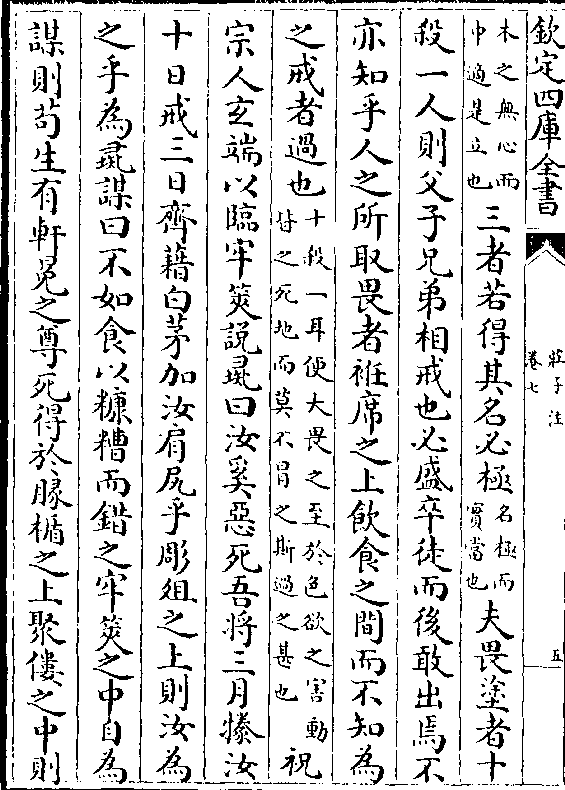 欽定四庫全書
莊子注
卷七
五
木之無心而
中適是立也
三者若得其名必極
名極而
實當也
夫畏塗者十
殺一人則父子兄弟相戒也必盛卒徒而後敢出焉不
亦知乎人之所取畏者袵席之上飲食之間而不知為
之戒者過也
十殺一耳便大畏之至於色欲之害動
皆之死地而莫不冒之斯過之甚也
祝
宗人玄端以臨牢筴説彘曰汝奚惡死吾將三月㹖汝
十日戒三日齊藉白茅加汝肩尻乎彫俎之上則汝為
之乎為彘謀曰不如食以糠糟而錯之牢筴之中自為
謀則苟生有軒冕之尊死得於腞楯之上聚僂之中則